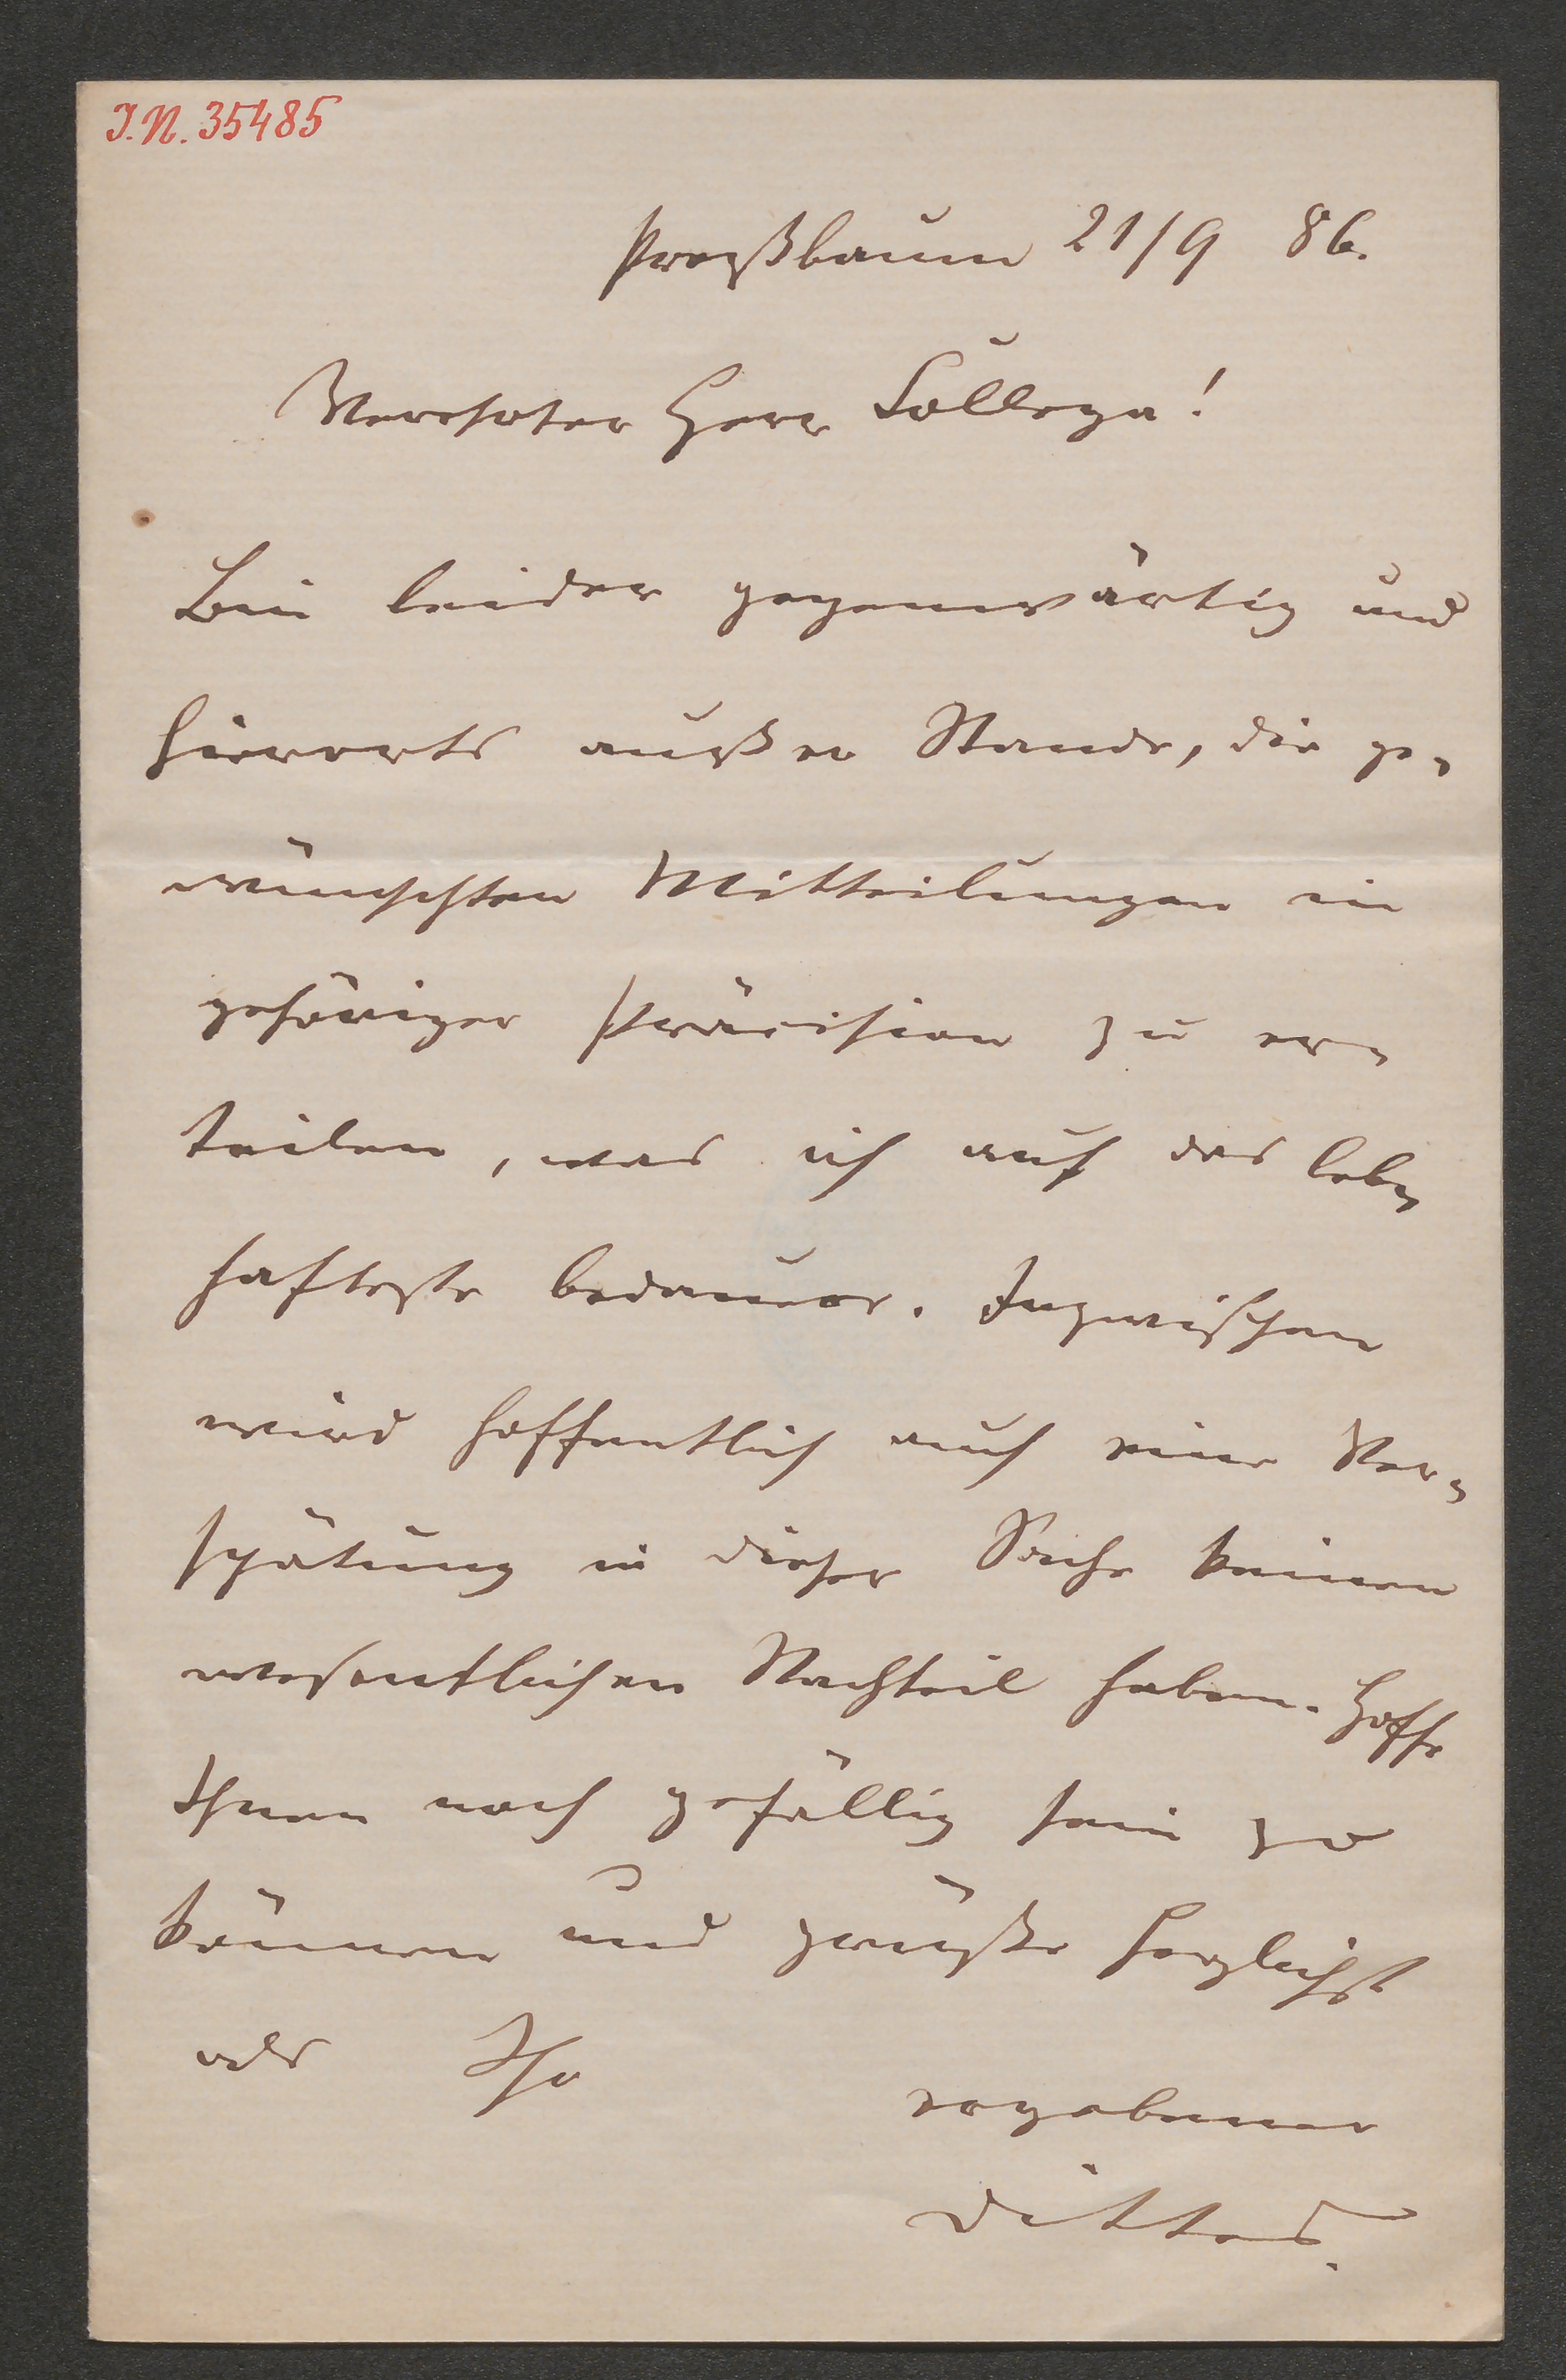 J.N. 35485
Preßbaum 21/9 86.
Verehrter Herr Kollega!
Bin leider gegenwärtig und
hierorts außer Stande, die ge-
wünschten Mitteilungen in
gehöriger Präcision zu er-
teilen, was ich auf das leb-
hafteste bedauere. Inzwischen
wird hoffentlich auch eine Ver-
spätung in dieser Sache keinen
wesentlichen Nachteil haben. Hoffe
Ihnen noch gefällig sein zu
können und grüße herzlichst
als Ihr
ergebener
Dittes.